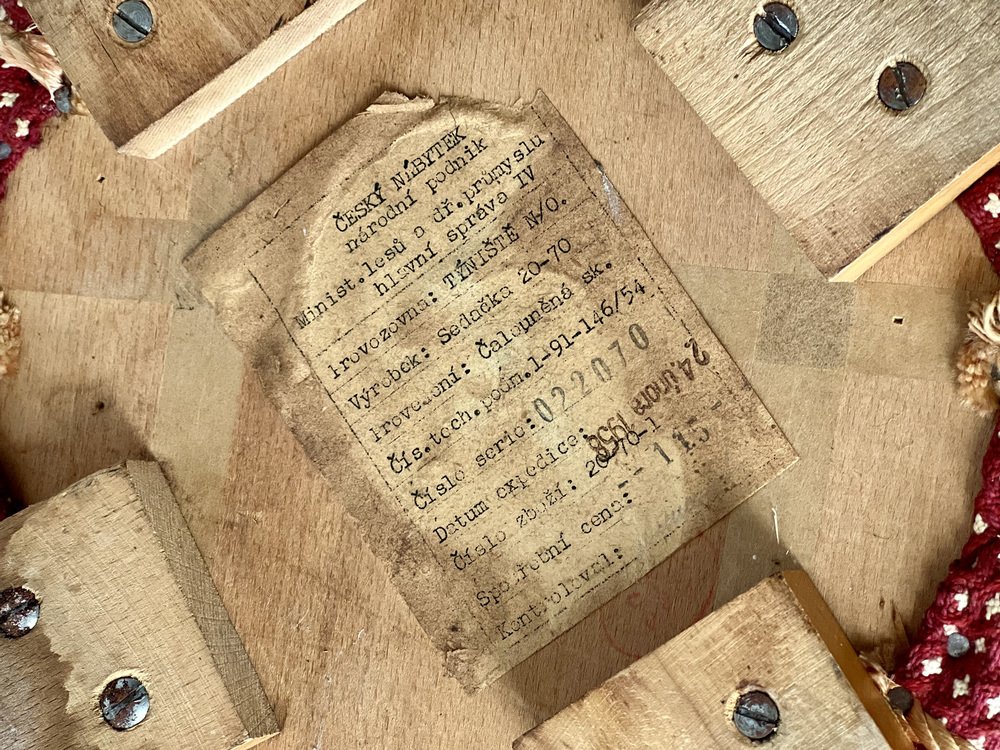 ČESKÝ NÁBYTEK
národní podnik
Minist.lesů a dř.průmyslu
hlavní správa IV
Provozovna: TÝNIŠTĚ N/O.
Výrobek: Sedačka 20-70
Provedení: Čalouněná sk.
Čís.tech.podm.1-91-146/54
Číslo serie: 022070
Datum expedice: 24. února 1958
Číslo zboží: 20-70-1
Spotřební cena: - 115 -
Kontroloval: